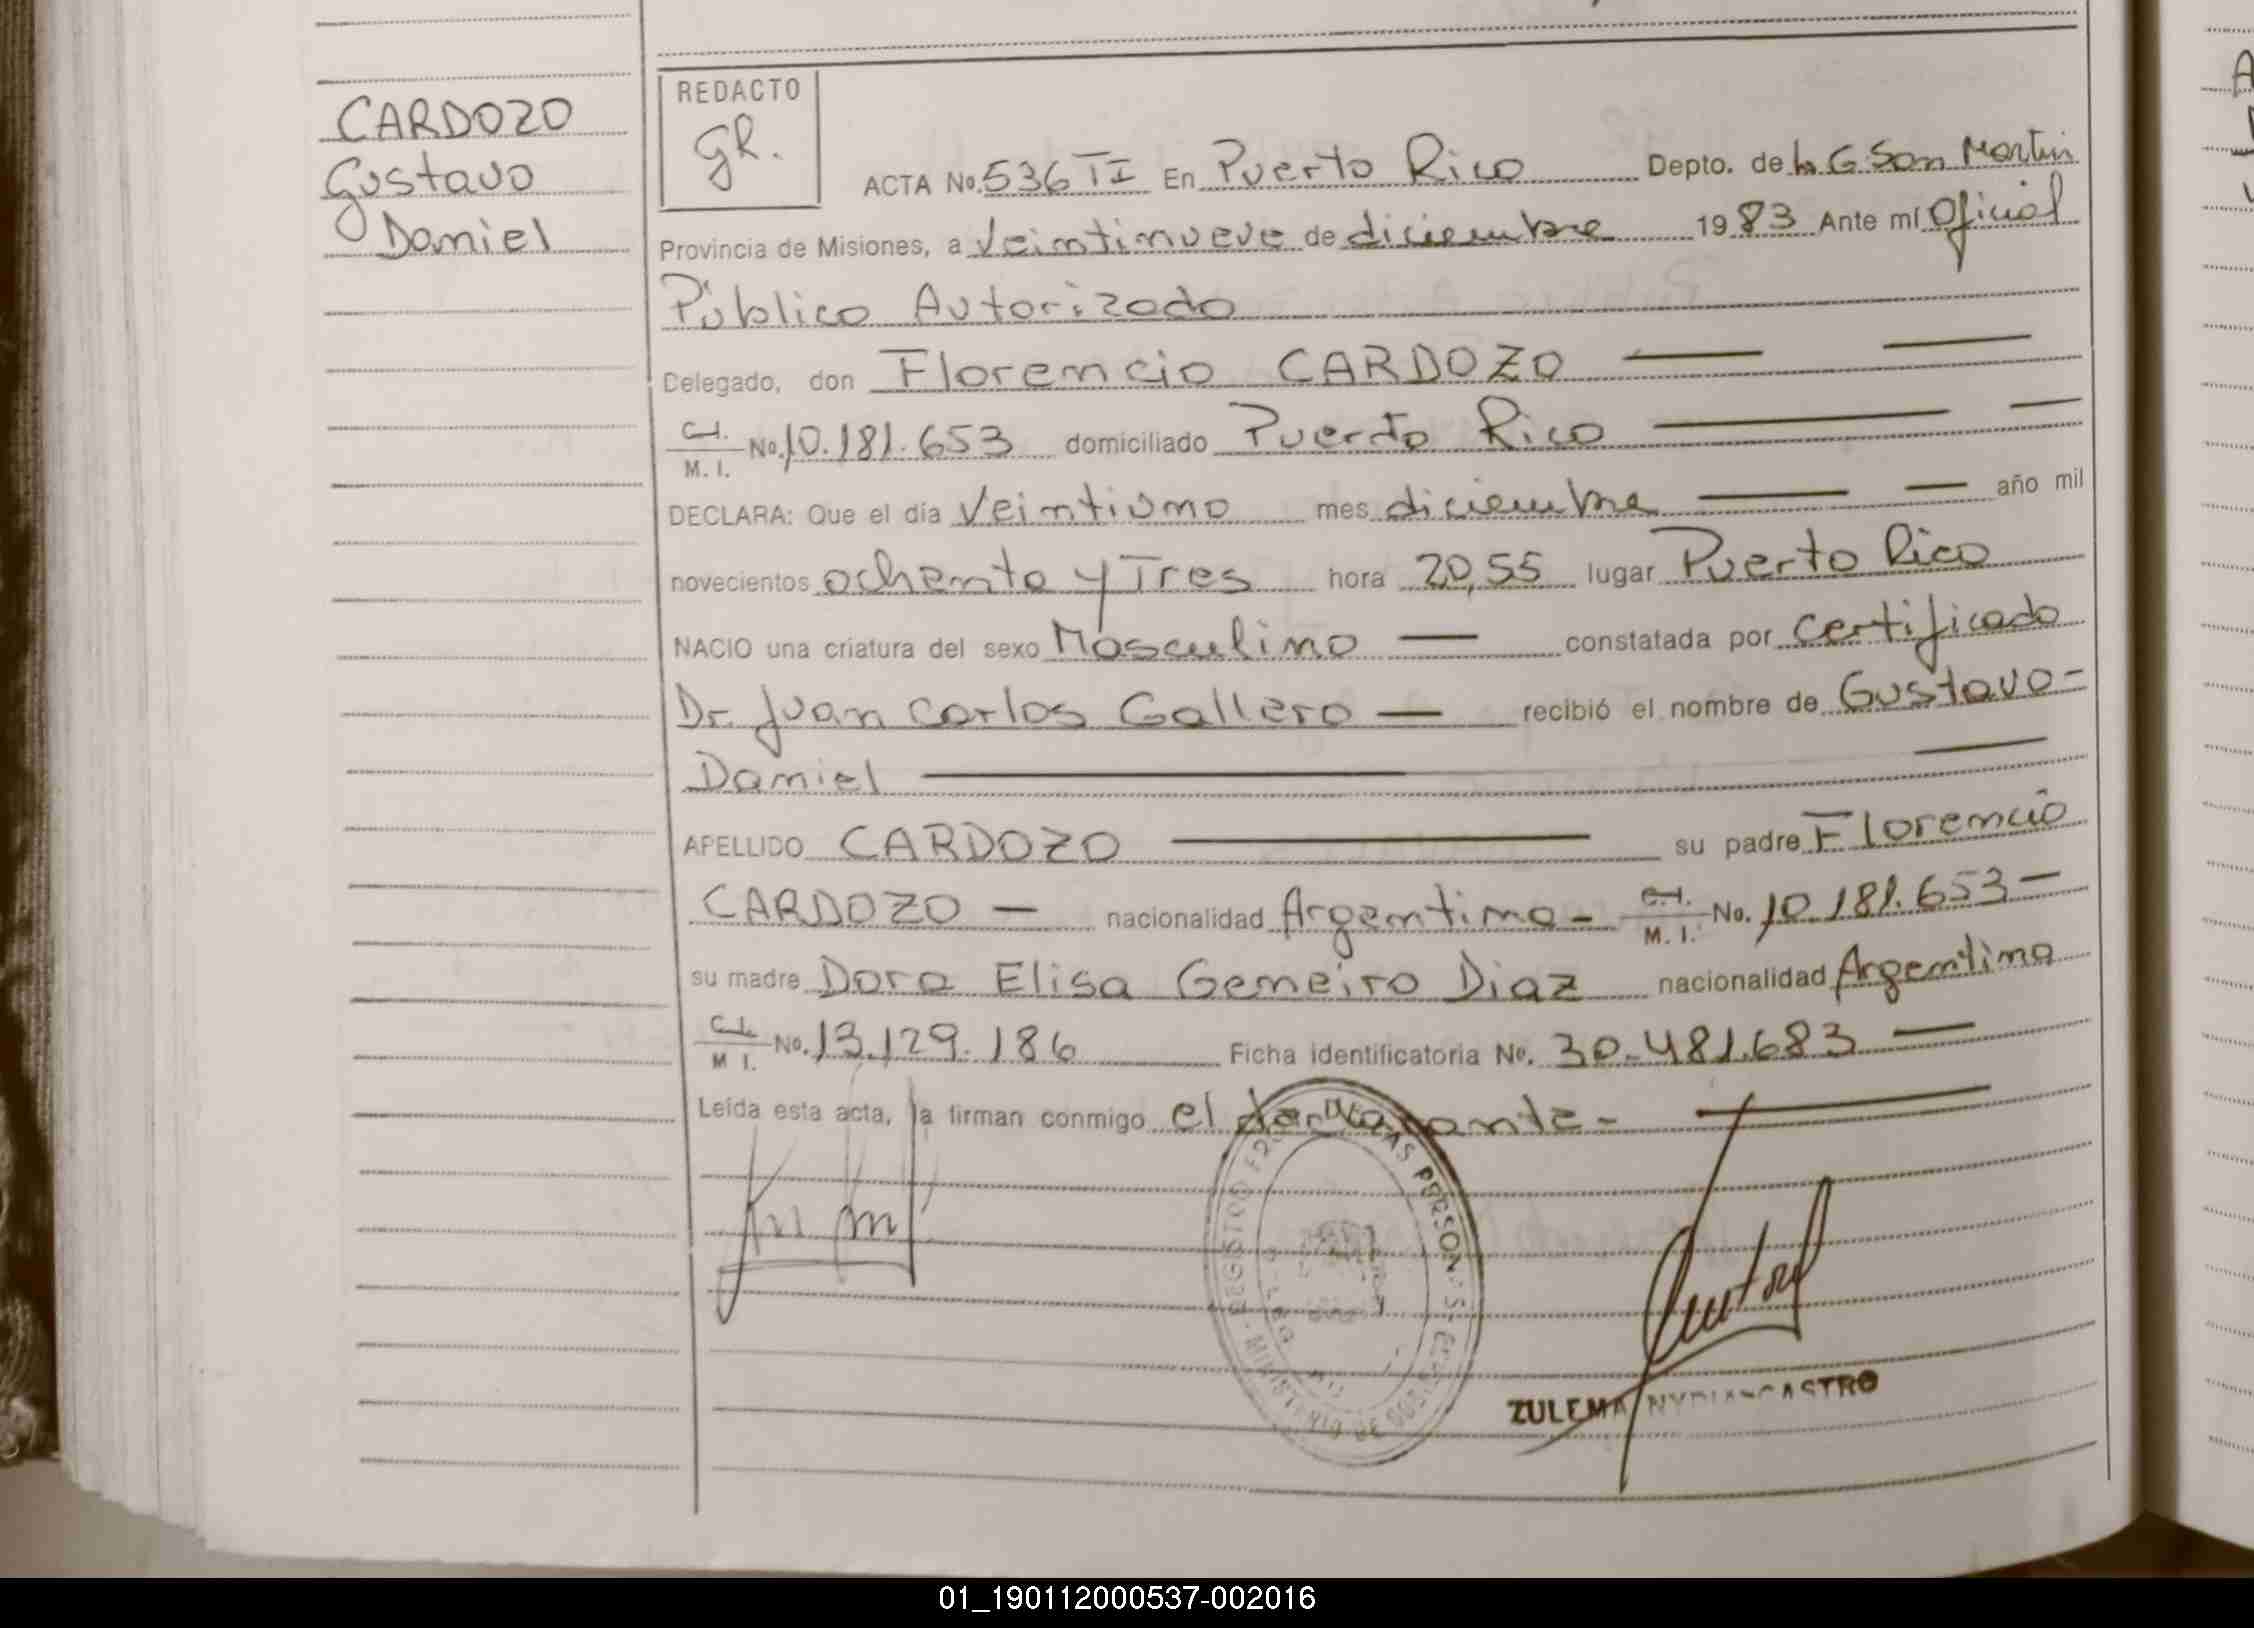 CARDOZO
Gustavo
Daniel
REDACTO
GR.
ACTA No. 536 TI En Puerto Rico Depto. de L. G. San Martin
Provincia de Misiones, a Veintinueve de diciembre 1983 Ante mí Oficial
Público Autorizado
Delegado, don Florencio CARDOZO
C.I.
M. I. No. 10.181.653 domiciliado Puerto Rico
DECLARA: Que el día Veintiuno mes diciembre año mil
novecientos ochenta y Tres hora 20,55 lugar Puerto Rico
NACIO una criatura del sexo Masculino constatada por certificado
Dr. Juan Carlos Gallero recibió el nombre de Gustavo
Daniel
APELLIDO CARDOZO su padre Florencio
CARDOZO nacionalidad Argentina C.I.
M. I. No. 10.181.653
su madre Dora Elisa Geneiro Diaz nacionalidad Argentina
C.I.
M I. No. 13.129.186 Ficha identificatoria No. 30.481.683
Leída esta acta, la firman conmigo el declarante
DE LAS PERSONAS
REGISTRO
ZULEMA NYDIA CASTRO
01_190112000537-002016